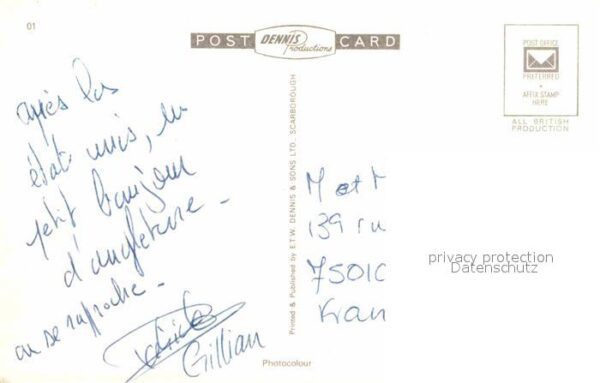 01
POST DENNIS Productions CARD
POST OFFICE
PREFERRED
AFFIX STAMP
HERE
ALL BRITISH
PRODUCTION
après les
états unis, un
petit bonjour
d'angleterre -
on se rapproche -
Gillian
Printed & Published by E.T.W. DENNIS & SONS LTD., SCARBOROUGH
M et M
139 ru
7501
Fran
privacy protection
Datenschutz
Photocolour